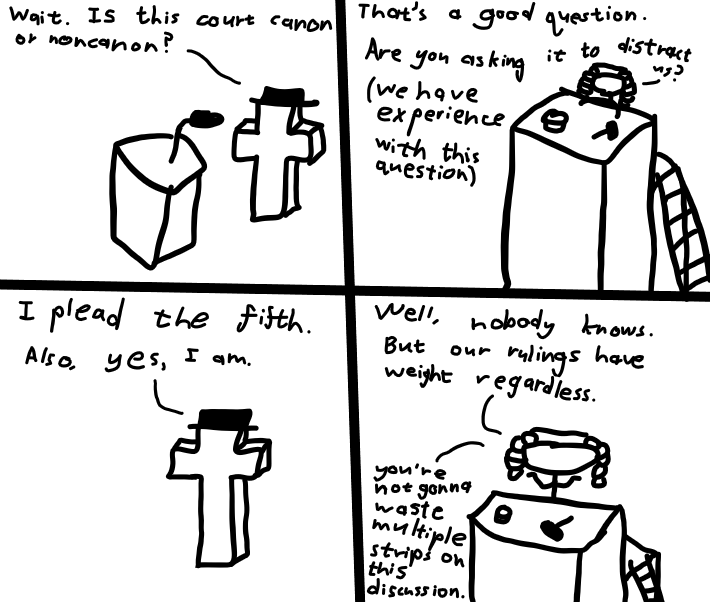 Wait. Is this court canon
or noncanon?
That's a good question.
Are you asking it to distract
us?
(we have
experience
with this
question)
I plead the fifth.
Also, yes, I am.
Well, nobody knows.
But our rulings have
weight regardless.
you're
not gonna
waste
multiple
strips on
this
discussion.